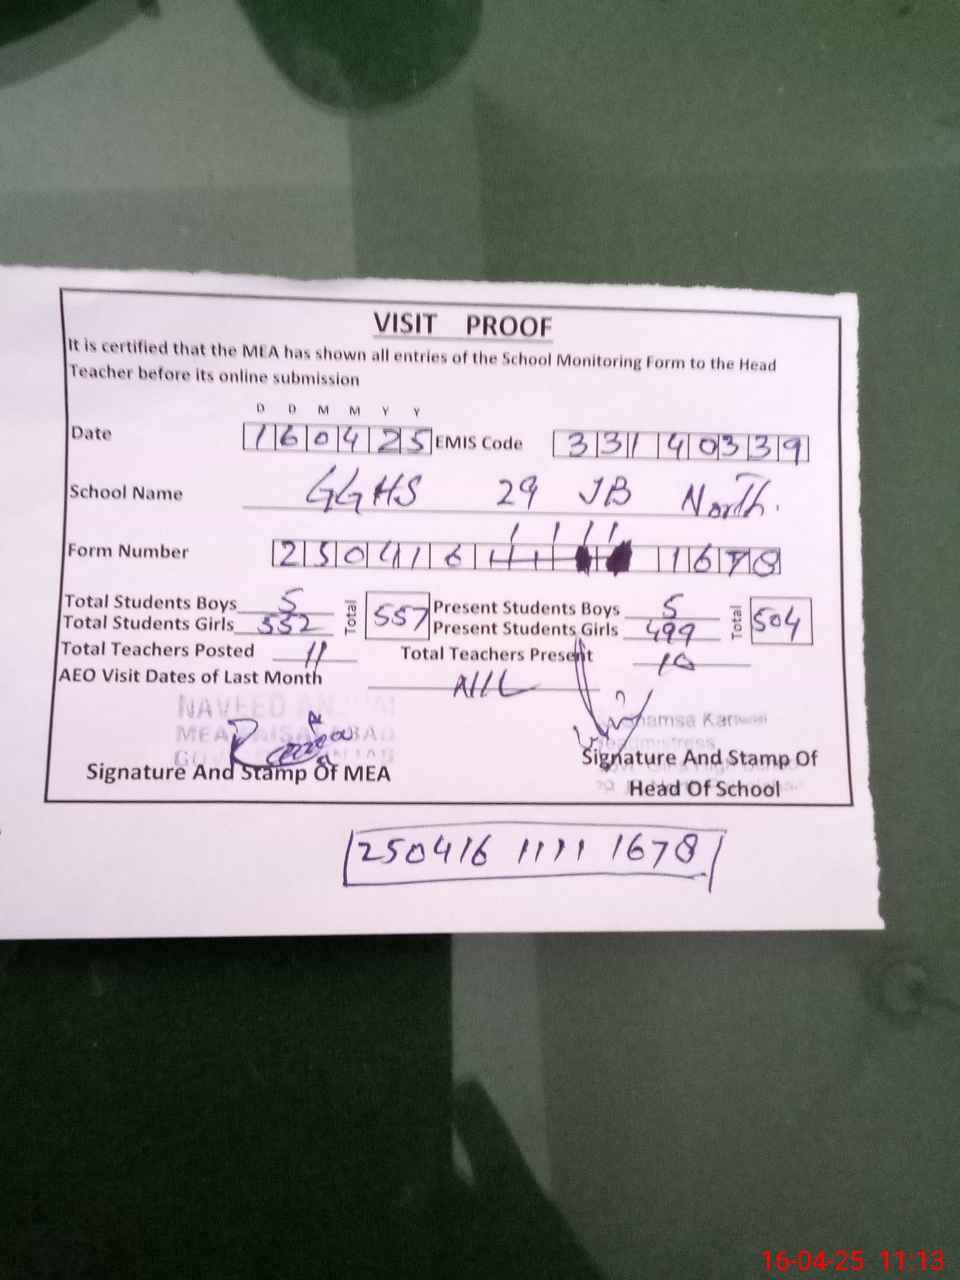 VISIT PROOF
It is certified that the MEA has shown all entries of the School Monitoring Form to the Head
Teacher before its online submission
D D M M Y Y
Date 160425 EMIS Code 33140339
School Name GGHS 29 JB North.
1 1 1 1
Form Number 250416 1678
Total Students Boys 5 Total 557 Present Students Boys 5 Total 504
Total Students Girls 552 Present Students Girls 499
Total Teachers Posted 11 Total Teachers Present 10
AEO Visit Dates of Last Month NIL
NAVEED
MEA
Signature And Stamp Of MEA
Signature And Stamp Of
Head Of School
250416 1111 1678
16-04-25 11:13